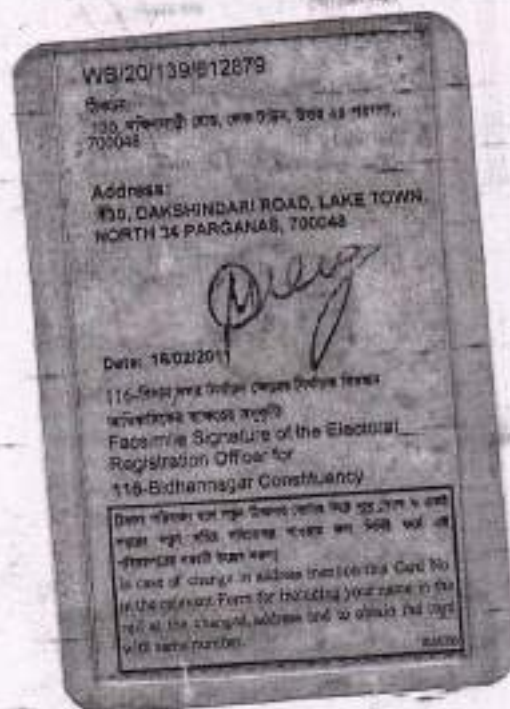 WB/20/139/612879
ঠিকানা:
130, দক্ষিণদাড়ী রোড, লেক টাউন, উত্তর 24 পরগণা,
700048
Address:
130, DAKSHINDARI ROAD, LAKE TOWN,
NORTH 24 PARGANAS, 700048
Date: 18/02/2011
116-বিধান নগর নির্বাচন ক্ষেত্রের নির্বাচক নিবন্ধন
আধিকারিকের স্বাক্ষরের অনুকৃতি
Facsimile Signature of the Electoral
Registration Officer for
116-Bidhannagar Constituency
In case of change in address mention this Card No.
in the relevant Form for including your name in the
roll at the changed address and to obtain the card
with same number.